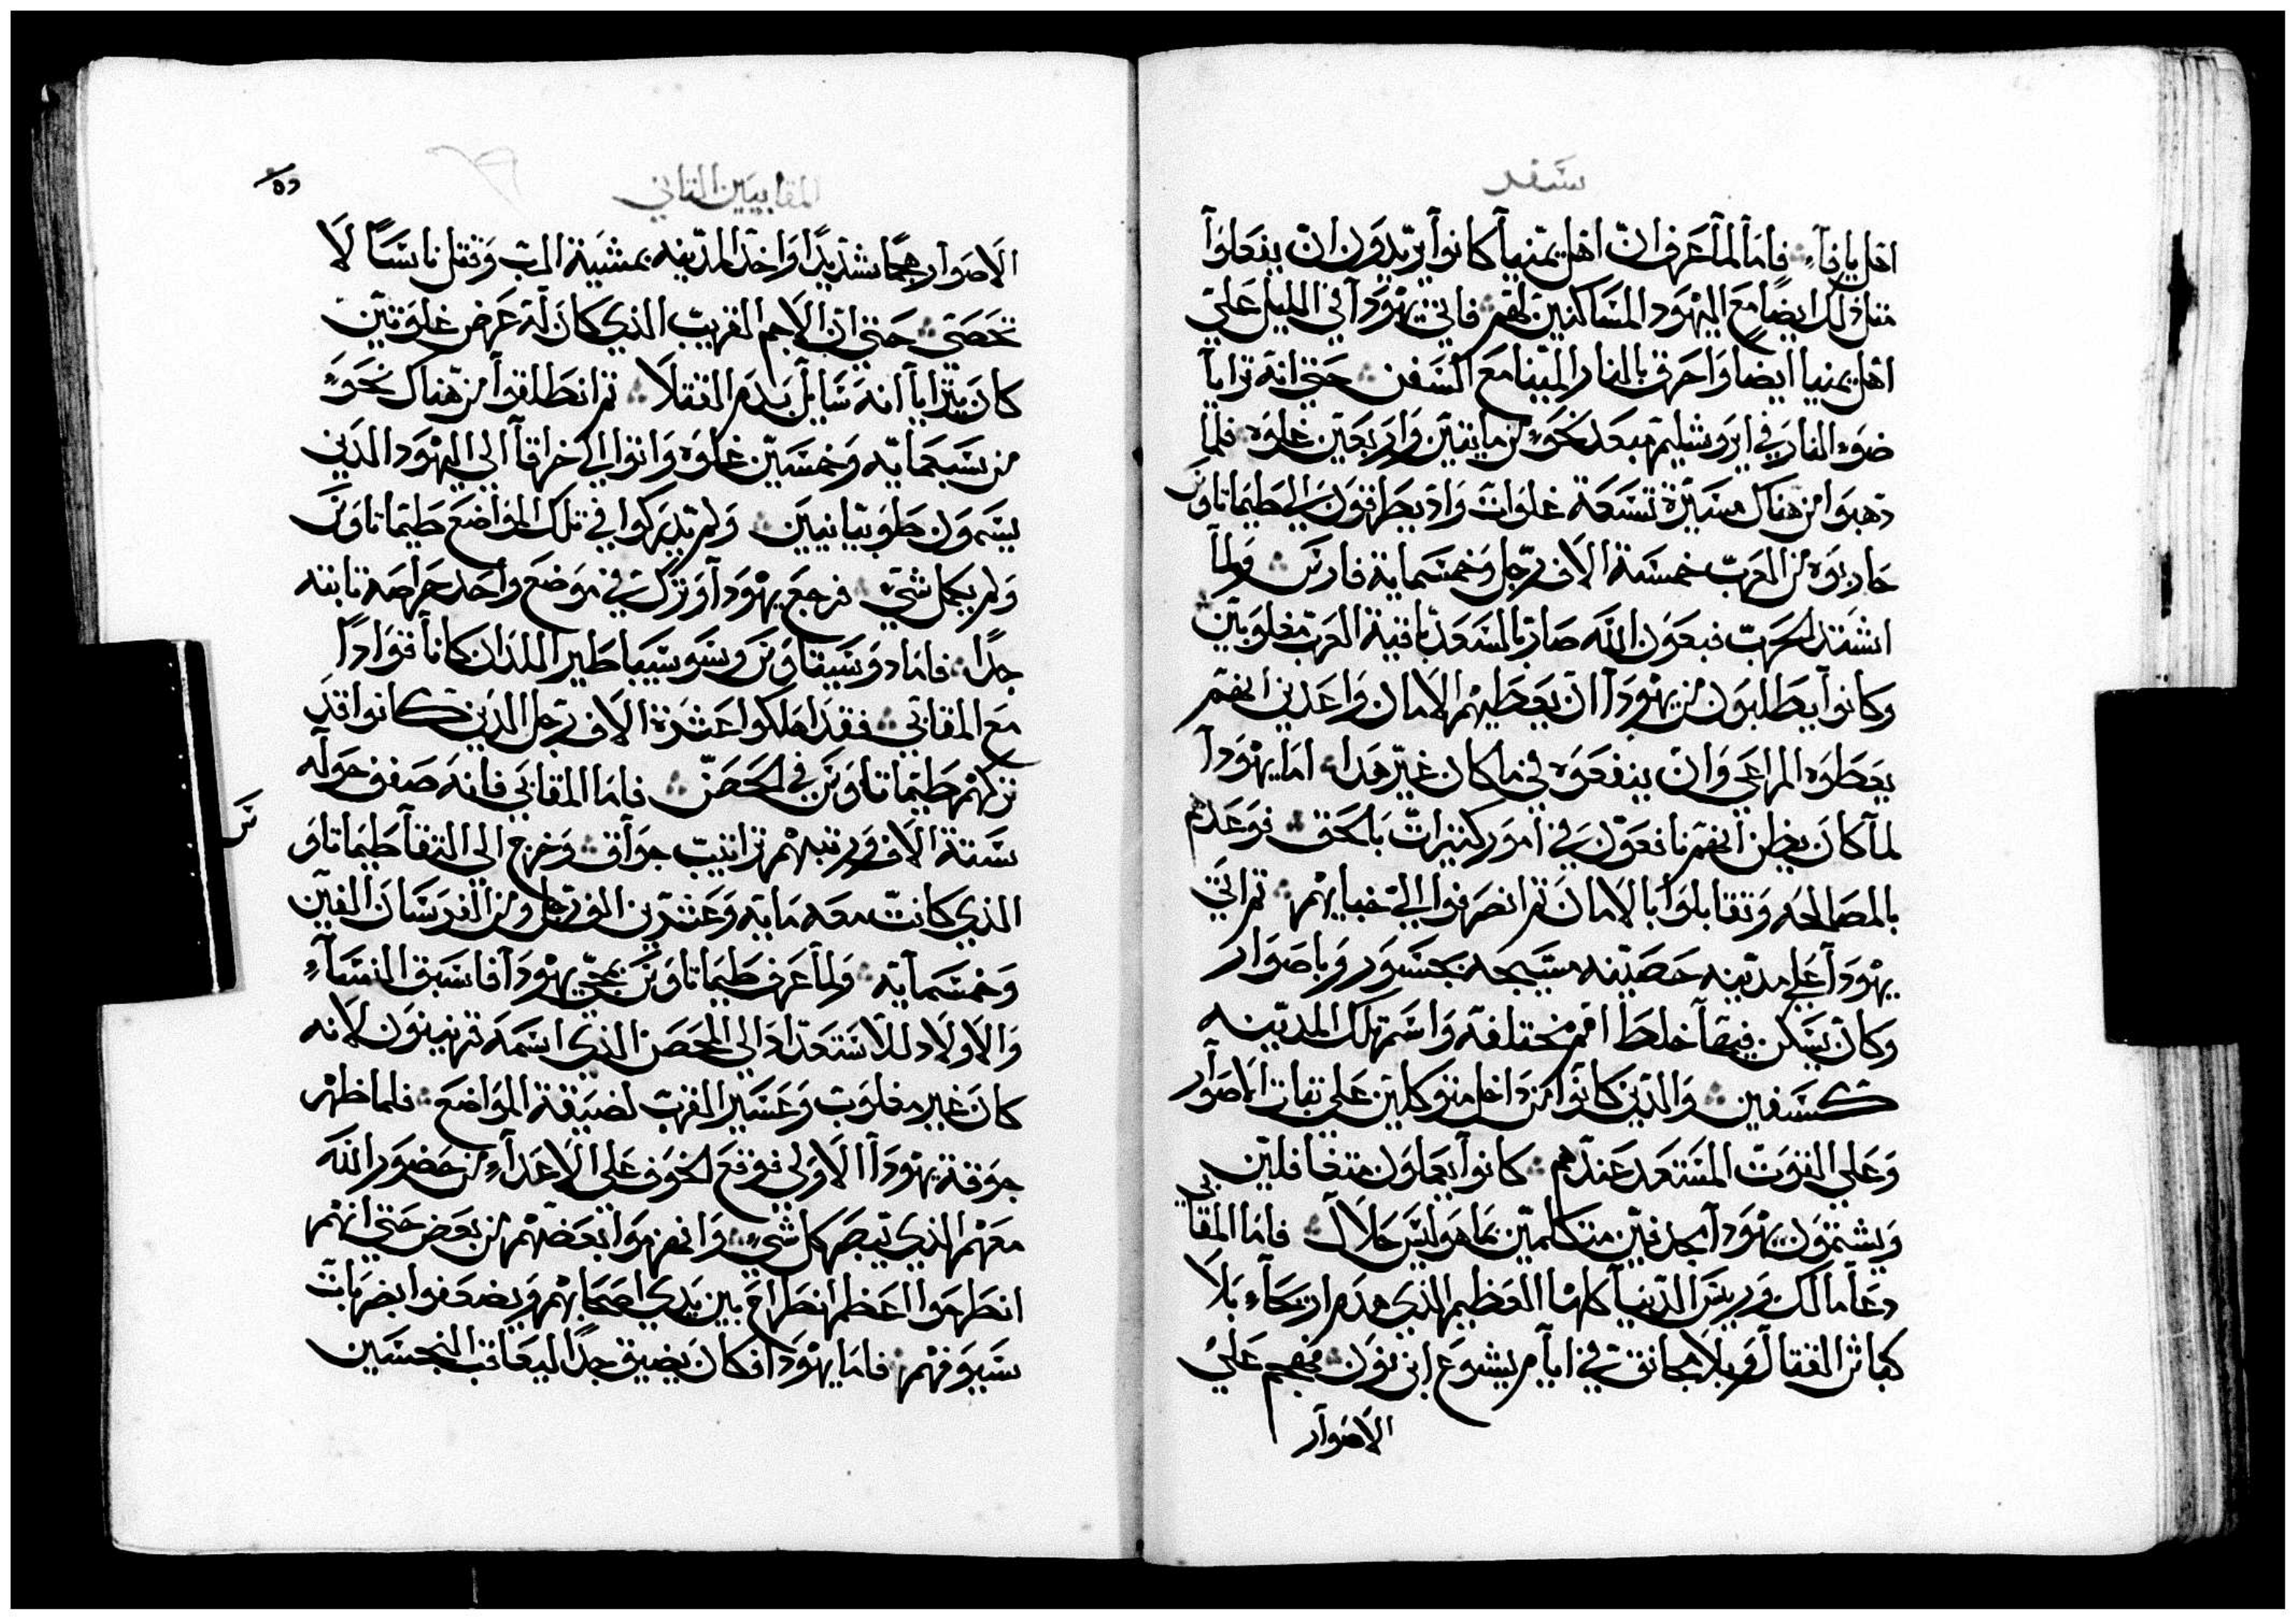 سفر
اهل يافاء فاما لما عرف ان اهل يمنيا كانوا يريدون ان يفعلوا
مثل ذلك ايضا مع اليهود المساكنين لهم فاتي يهودا في الليل علي
اهل يمنيا ايضا واحرق بالنار المينا مع السفن حتي انه ترايا
ضوء النار في ايروشليم مبعد نحو من مايتين واربعين غلوه فلما
ذهبوا من هناك مسيرة تسعة غلوات واذ يطرقون الي طيماتاوس
حاربوه من العرب خمسة الاف رجل وخمسماية فارس ولما
اشتد الحرب فبعون الله صار بالسعد باقية العرب مغلوبين
وكانوا يطلبون من يهودا ان يعطيهم الامان واعدين انهم
يعطوه المراعي وان ينفعوه في ما كان غير هذا اما يهودا
لما كان يظن انهم نافعون في امور كثيرات بالحق فوعدهم
بالمصالحه وتقابلوا بالامان ثم انصرفوا الي خبايهم ثم اتي
يهودا علي مدينه حصينه مسيجه بجسور وباصوار
وكان يسكن فيها خلط امم مختلفه واسم تلك المدينه
كسفين والذين كانوا من داخل متوكلين علي ثبات الاصوار
وعلي القوت المستعد عندهم كانوا يعملون متغافلين
ويشتمون يهودا مجدفين متكلمين بما هو ليس حلال فاما المقابي
دعا مالك وريس الدنيا كلها العظيم الذي هدم اريحاء بلا
كباش القتال وبلا مجانق في ايام يشوع ابن نون فهجم علي
الاصوار
المقابيين الثاني
الاصوار هجما شديدا واخذ المدينه بمشية الرب وقتل ناسا لا
تحصي حتي ان الاجم القريب الذي كان له عرض غلوتين
كان يترايا انه سايل بدم القتلا ثم انطلقوا من هناك نحو
من سبعمايه وخمسين غلوه واتوا الي خراقا الي اليهود الذين
يسمون طوبيانيين ولم يدركوا في تلك المواضع طيماتاوس
ولم يكمل شي فرجع يهودا وترك في موضع واحد حراصه ثابته
جدا فاما دوسيتاوس وسوسيباطير اللذان كانا قوادا
مع المقابي فقد اهلكوا عشرة الاف رجل الذين كانوا قد
تركهم طيماتاوس في الحصن فاما المقابي فانه صفف حوله
ستة الاف ورتبهم تراتيب جواق وخرج الي التقا طيماتاوس
الذي كانت معه مايه وعشرين الف رجل ومن الفرسان الفين
وخمسمايه ولما عرف طيماتاوس بمجي يهودا فاسبق النساء
والاولاد للاستعداد الي الحصن الذي اسمه قرنينون لانه
كان غير مغلوب وعسير القرب لضيقة المواضع فلما ظهر
جوقة يهودا الاولي فوقع الخوف علي الاعداء من حضور الله
معهم الذي يبصر كل شي وانهزموا بعضهم من بعض حتي انهم
انطرحوا اعظم انطراح بين يدي اصحابهم ويضعفوا بضربات
سيوفهم فاما يهودا فكان يضيق جدا ليعاقب النجسين